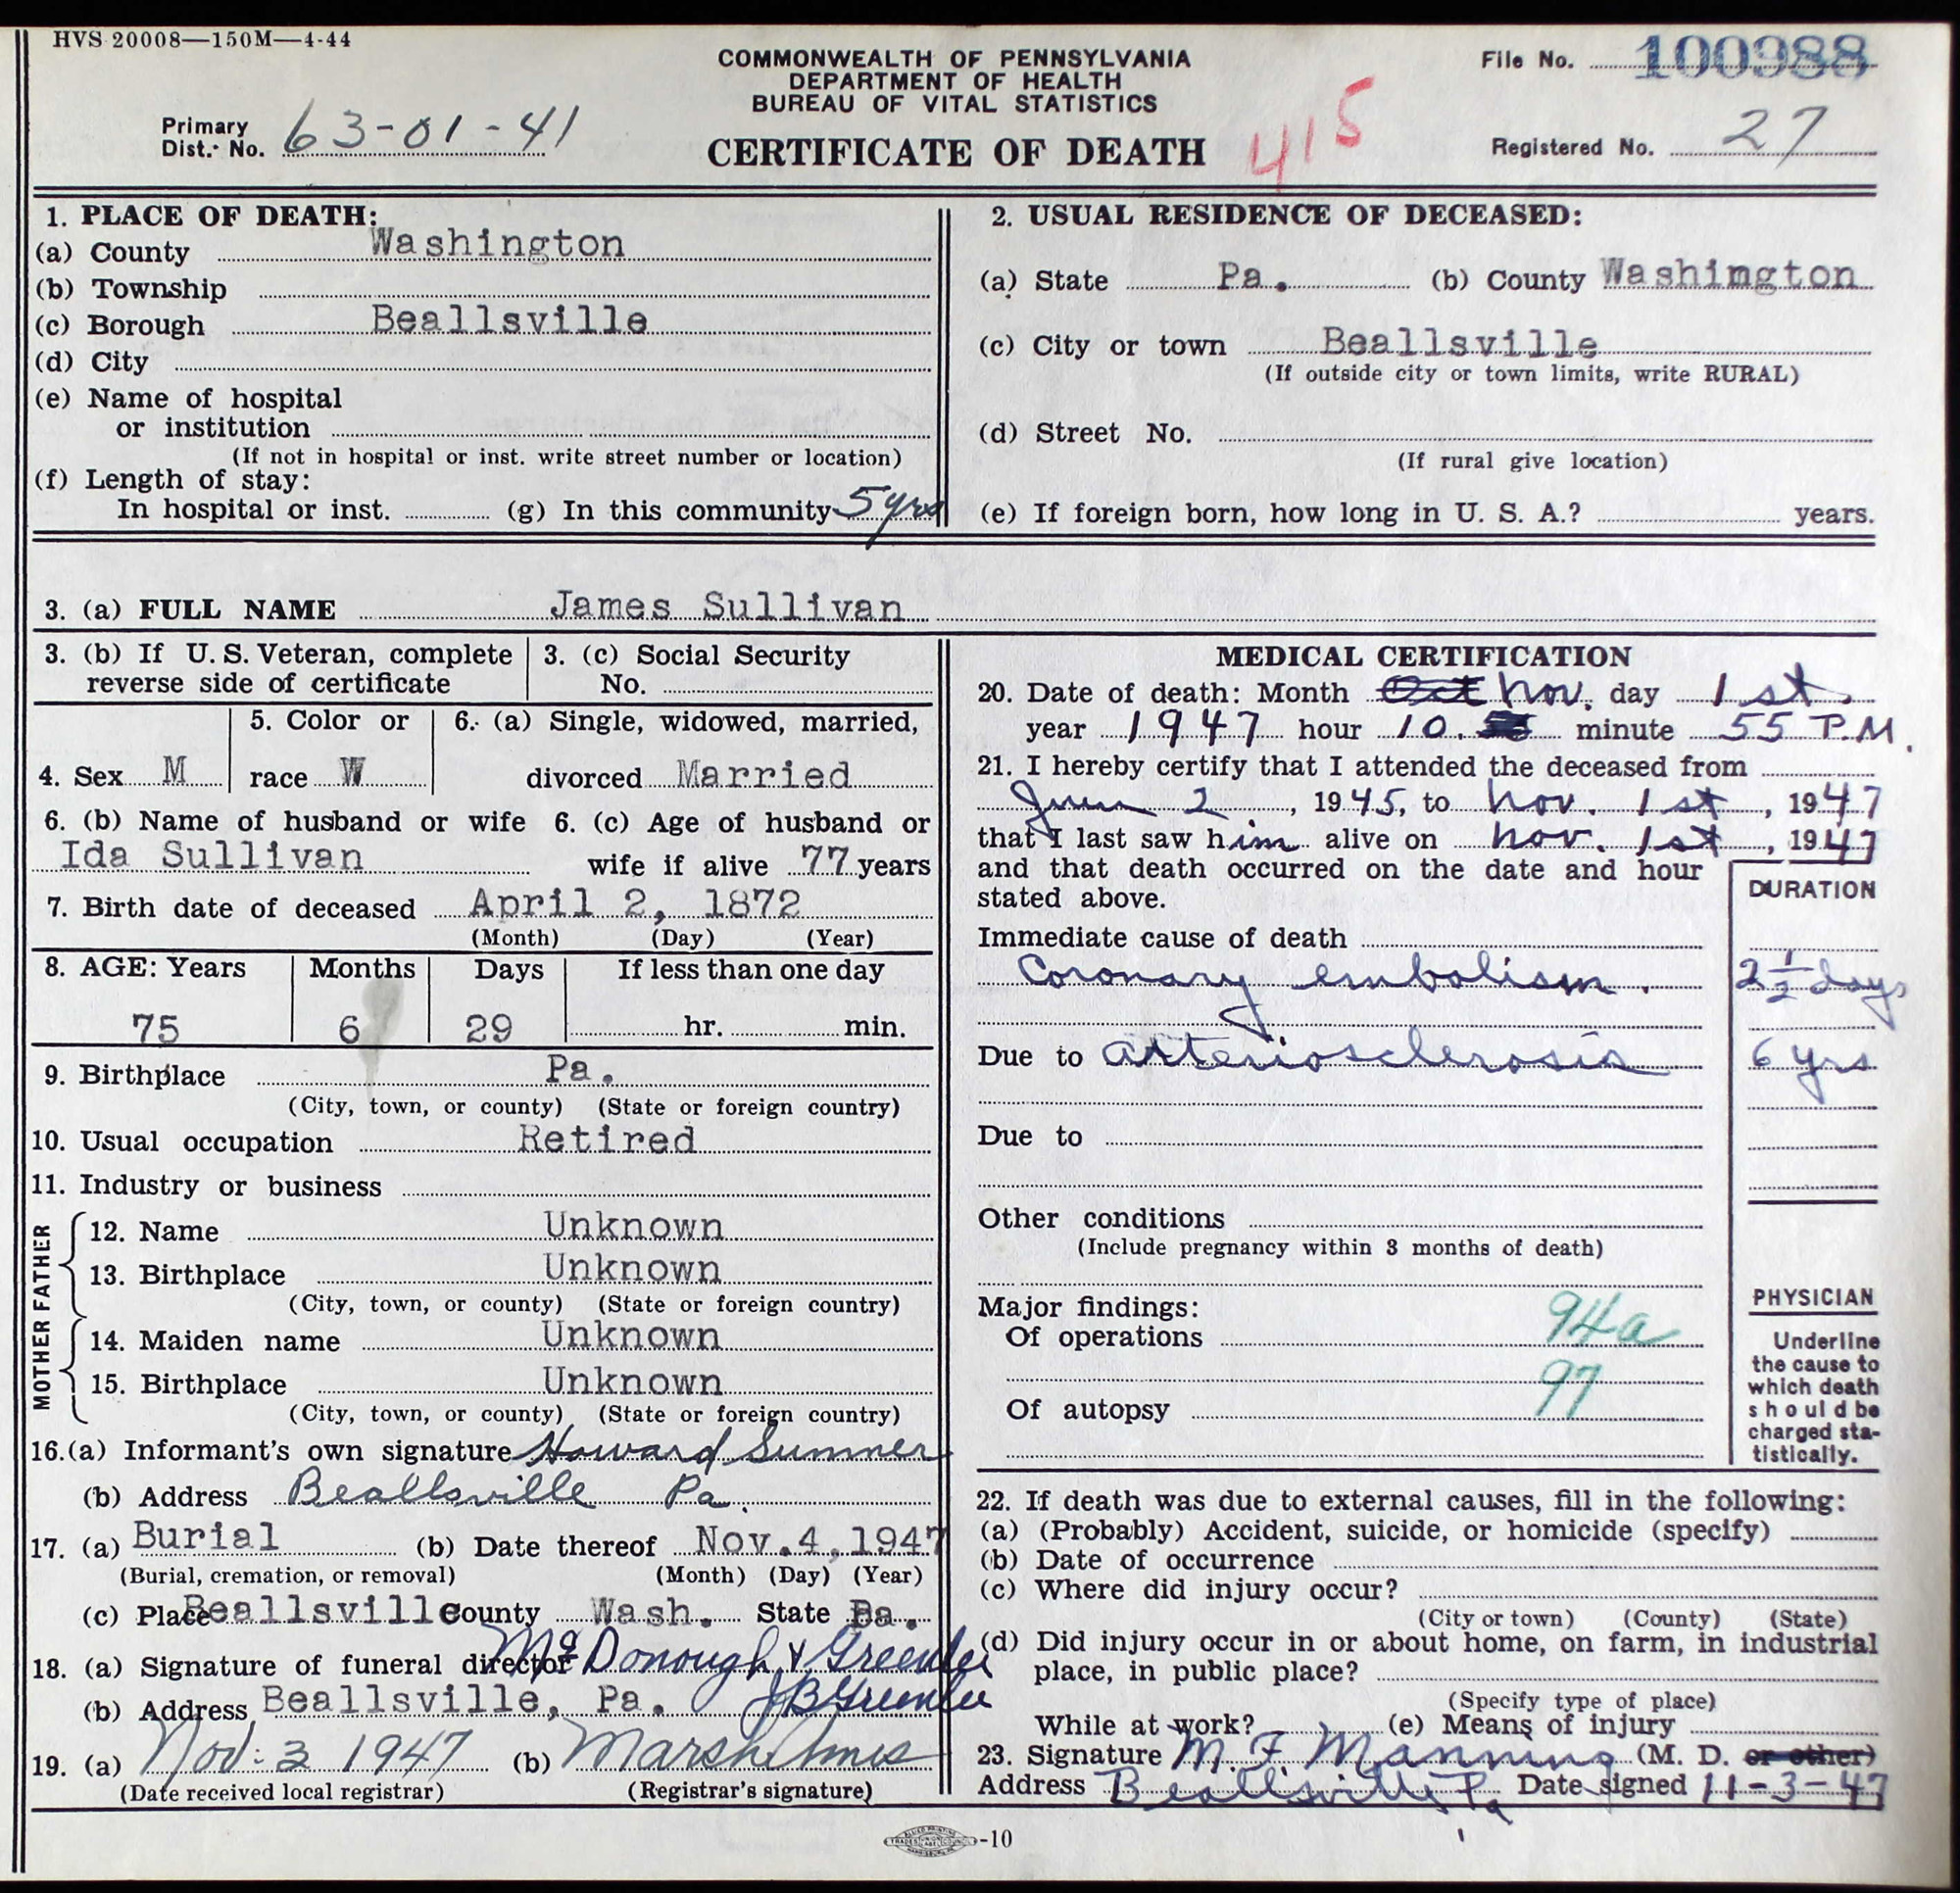 HVS 20008—150M—4-44
COMMONWEALTH OF PENNSYLVANIA
DEPARTMENT OF HEALTH
BUREAU OF VITAL STATISTICS
CERTIFICATE OF DEATH
415
File No. 100988
Primary Dist. No. 63-01-41
Registered No. 27
1. PLACE OF DEATH:
(a) County Washington
(b) Township
(c) Borough Beallsville
(d) City
(e) Name of hospital
or institution
(If not in hospital or inst. write street number or location)
(f) Length of stay:
In hospital or inst. (g) In this community 5 yrs
2. USUAL RESIDENCE OF DECEASED:
(a) State Pa. (b) County Washington
(c) City or town Beallsville
(If outside city or town limits, write RURAL)
(d) Street No.
(If rural give location)
(e) If foreign born, how long in U. S. A.? years.
3. (a) FULL NAME James Sullivan
3. (b) If U. S. Veteran, complete
reverse side of certificate
3. (c) Social Security
No.
4. Sex M
5. Color or
race W
6. (a) Single, widowed, married,
divorced Married
6. (b) Name of husband or wife
Ida Sullivan
6. (c) Age of husband or
wife if alive 77 years
7. Birth date of deceased April 2, 1872
(Month) (Day) (Year)
8. AGE: Years Months Days If less than one day
75 6 29 hr. min.
9. Birthplace Pa.
(City, town, or county) (State or foreign country)
10. Usual occupation Retired
11. Industry or business
FATHER
12. Name Unknown
13. Birthplace Unknown
(City, town, or county) (State or foreign country)
MOTHER
14. Maiden name Unknown
15. Birthplace Unknown
(City, town, or county) (State or foreign country)
16.(a) Informant's own signature Howard Sumner
(b) Address Beallsville Pa.
17. (a) Burial (b) Date thereof Nov.4,1947
(Burial, cremation, or removal) (Month) (Day) (Year)
(c) Place Beallsville County Wash. State Pa.
18. (a) Signature of funeral director McDonough & Greenlee
(b) Address Beallsville, Pa. J B Greenlee
19. (a) Nov. 3 1947 (b) Marsh
(Date received local registrar) (Registrar's signature)
MEDICAL CERTIFICATION
20. Date of death: Month Oct Nov. day 1st.
year 1947 hour 10. minute 55 P.M.
21. I hereby certify that I attended the deceased from
2, 1945, to Nov. 1st, 1947
that I last saw him alive on Nov. 1st, 1947
and that death occurred on the date and hour
stated above.
DURATION
Immediate cause of death
Coronary embolism. 2 1/2 days
Due to arteriosclerosis 6 yrs
Due to
Other conditions
(Include pregnancy within 3 months of death)
Major findings:
Of operations 94a
97
Of autopsy
PHYSICIAN
Underline
the cause to
which death
should be
charged sta-
tistically.
22. If death was due to external causes, fill in the following:
(a) (Probably) Accident, suicide, or homicide (specify)
(b) Date of occurrence
(c) Where did injury occur?
(City or town) (County) (State)
(d) Did injury occur in or about home, on farm, in industrial
place, in public place?
(Specify type of place)
While at work? (e) Means of injury
23. Signature M. F. Manning (M. D. or other)
Address Beallsville, Pa Date signed 11-3-47
-10